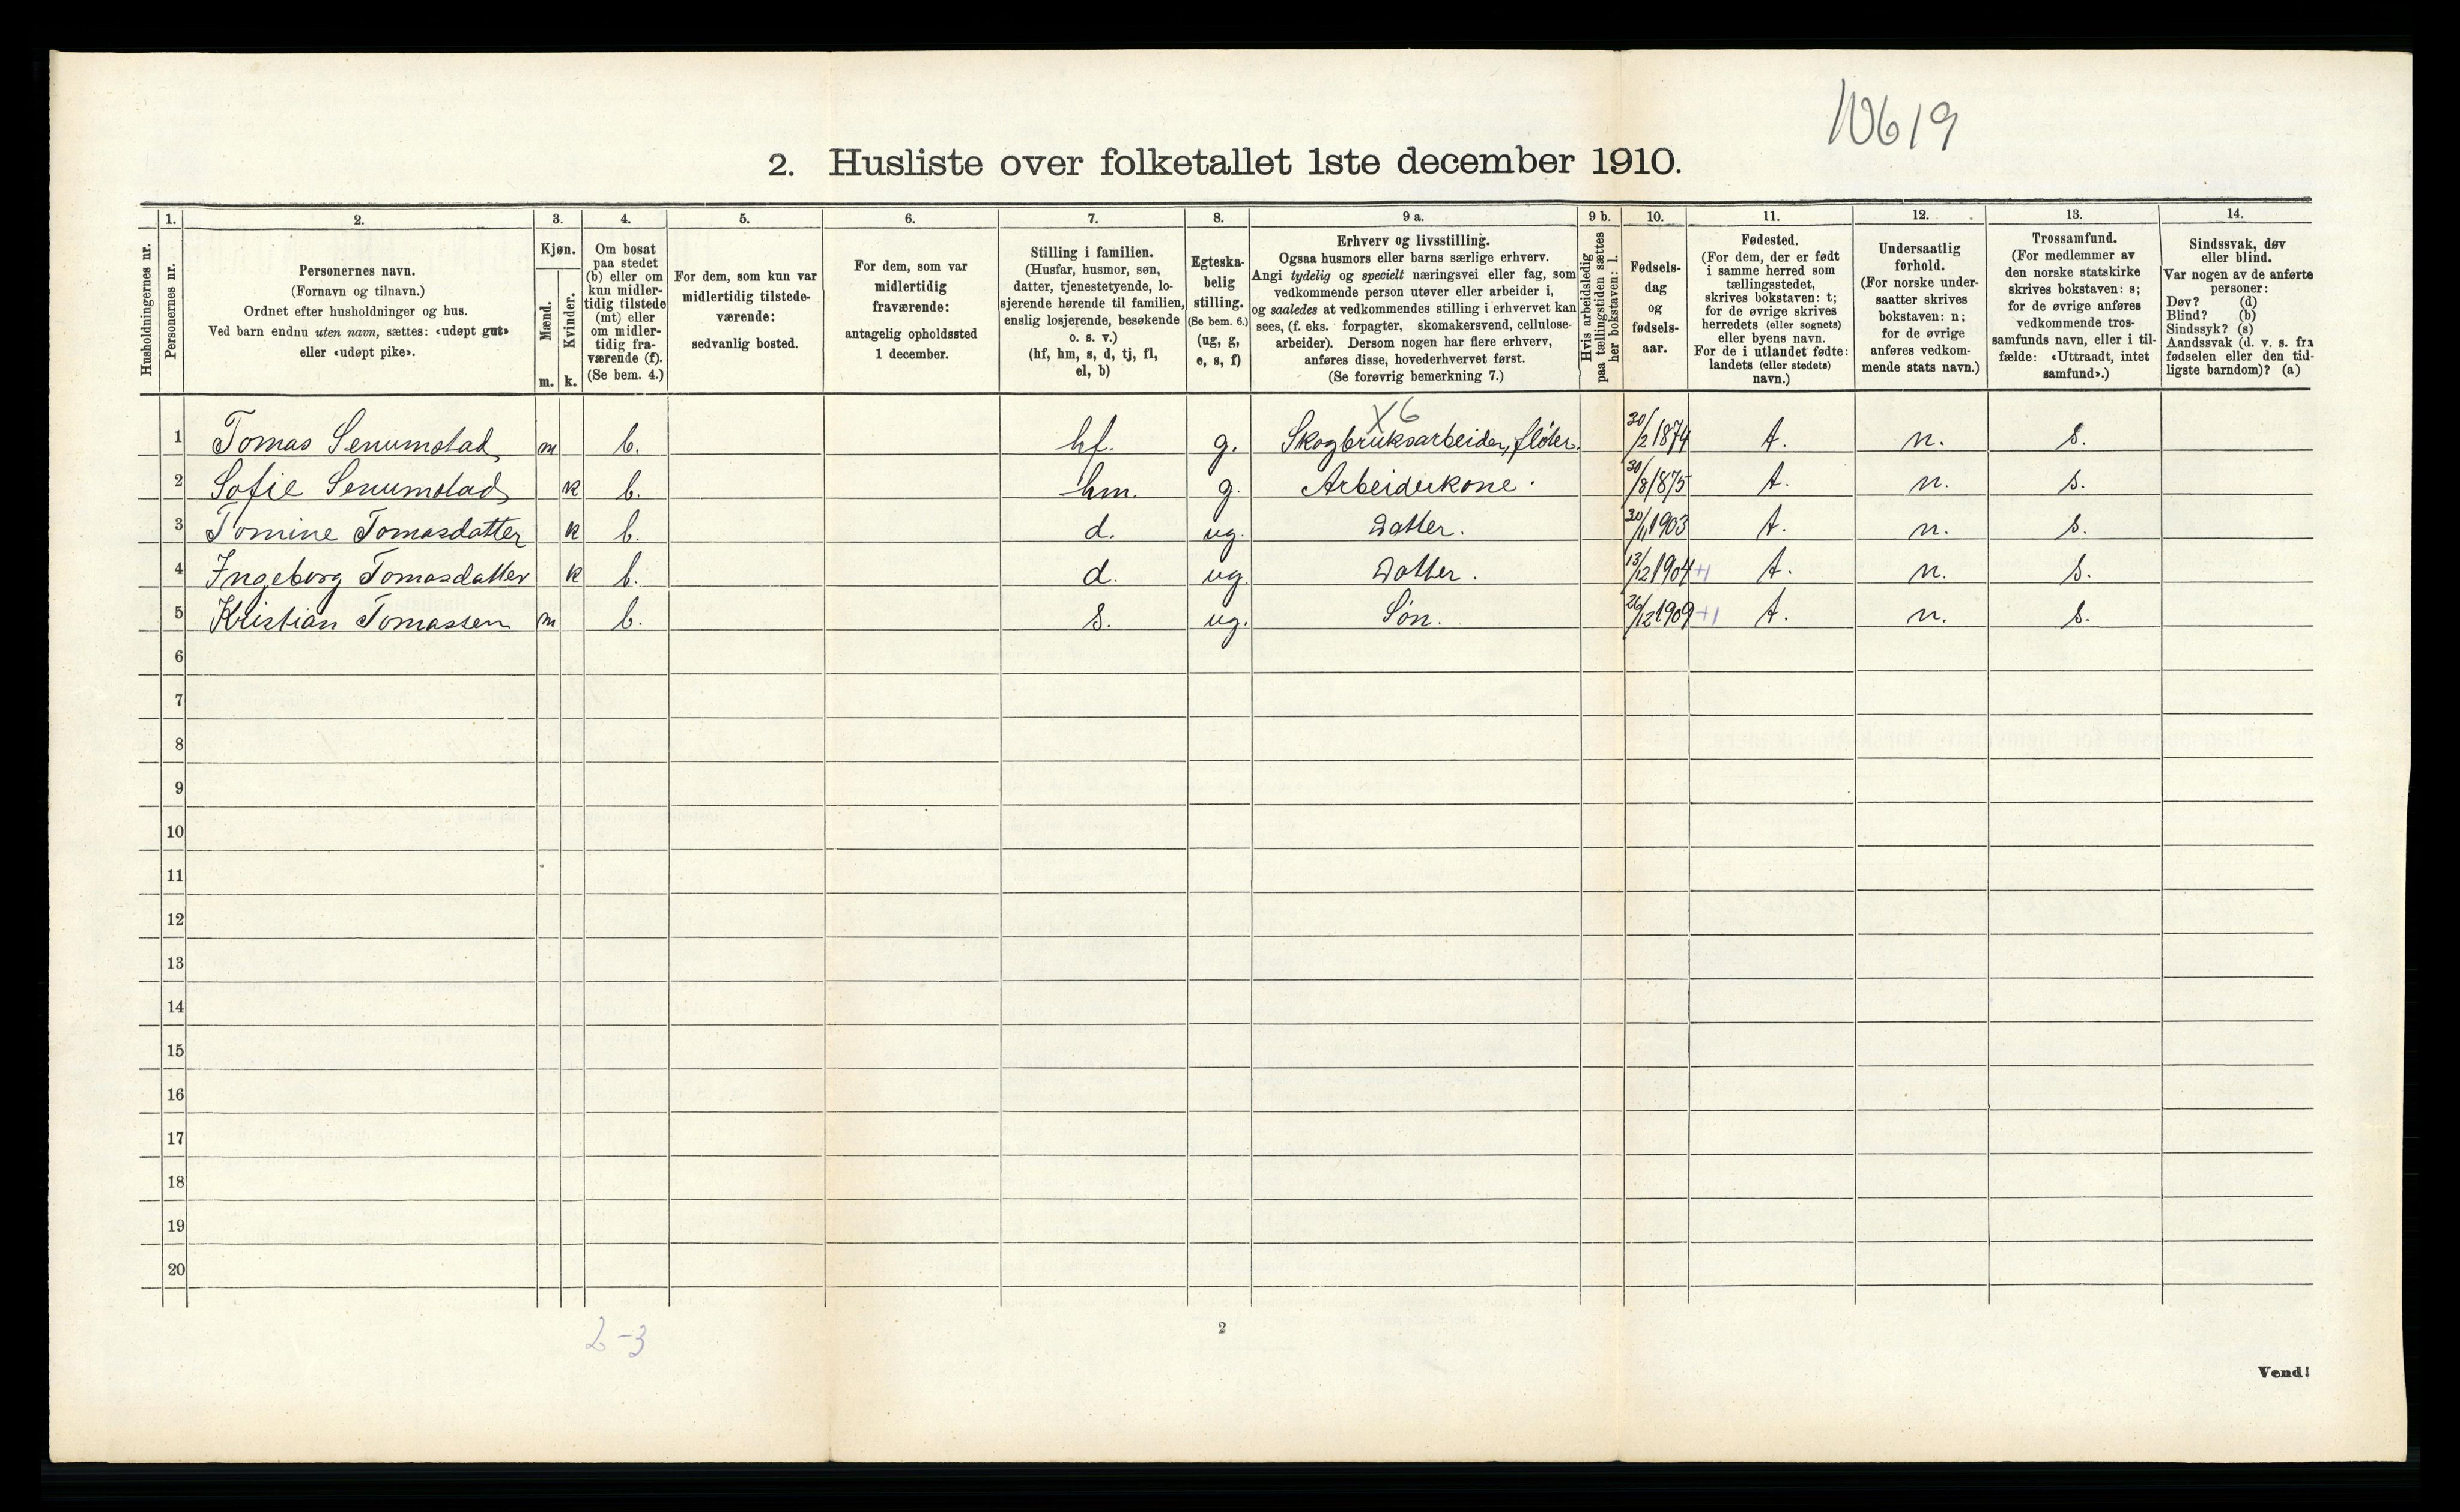 10619
2. Husliste over folketallet 1ste december 1910.
Husholdningernes nr.
1.
Personernes nr.
2.
Personernes navn.
(Fornavn og tilnavn.)
Ordnet efter husholdninger og hus.
Ved barn endnu uten navn, sættes: «udøpt gut»
eller «udøpt pike».
3.
Kjøn.
Mænd.
Kvinder.
m. k.
4.
Om bosat
paa stedet
(b) eller om
kun midler-
tidig tilstede
(mt) eller
om midler-
tidig fra-
værende (f).
(Se bem. 4.)
5.
For dem, som kun var
midlertidig tilstede-
værende:
sedvanlig bosted.
6.
For dem, som var
midlertidig
fraværende:
antagelig opholdssted
1 december.
7.
Stilling i familien.
(Husfar, husmor, søn,
datter, tjenestetyende, lo-
sjerende hørende til familien,
enslig losjerende, besøkende
o. s. v.)
(hf, hm, s, d, tj, fl,
el, b)
8.
Egteska-
belig
stilling.
(Se bem. 6.)
(ug, g,
e, s, f)
9 a.
Erhverv og livsstilling.
Ogsaa husmors eller barns særlige erhverv.
Angi tydelig og specielt næringsvei eller fag, som
vedkommende person utøver eller arbeider i,
og saaledes at vedkommendes stilling i erhvervet kan
sees, (f. eks. forpagter, skomakersvend, cellulose-
arbeider). Dersom nogen har flere erhverv,
anføres disse, hovederhvervet først.
(Se forøvrig bemerkning 7.)
9 b.
Hvis arbeidsledig
paa tællingstiden sættes
her bokstaven: l.
10.
Fødsels-
dag
og
fødsels-
aar.
11.
Fødested.
(For dem, der er født
i samme herred som
tællingsstedet,
skrives bokstaven: t;
for de øvrige skrives
herredets (eller sognets)
eller byens navn.
For de i utlandet fødte:
landets (eller stedets)
navn.)
12.
Undersaatlig
forhold.
(For norske under-
saatter skrives
bokstaven: n;
for de øvrige
anføres vedkom-
mende stats navn.)
13.
Trossamfund.
(For medlemmer av
den norske statskirke
skrives bokstaven: s;
for de øvrige anføres
vedkommende tros-
samfunds navn, eller i til-
fælde: «Uttraadt, intet
samfund».)
14.
Sindssvak, døv
eller blind.
Var nogen av de anførte
personer:
Døv? (d)
Blind? (b)
Sindssyk? (s)
Aandssvak (d. v. s. fra
fødselen eller den tid-
ligste barndom)? (a)
X6
1 Tomas Senumstad m b. hf. g. Skogbruksarbeider, fløter. 30/2 1874 t. n. s.
2 Sofie Senumstad k b. hm. g. Arbeiderkone. 30/8 1875 t. n. s.
3 Tomine Tomasdatter k b. d. ug. Datter. 30/11 1903 t. n. s.
4 Ingeborg Tomasdatter k b. d. ug. Datter. 13/12 1904 +1 t. n. s.
5 Kristian Tomassen m b. s. ug. Søn. 26/12 1909 +1 t. n. s.
6
7
8
9
10
11
12
13
14
15
16
17
18
19
20
2-3
2
Vend!